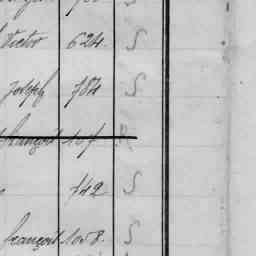 Victor 624. S
Joseph 784 S
françois 107
742 S
françois 1008. S